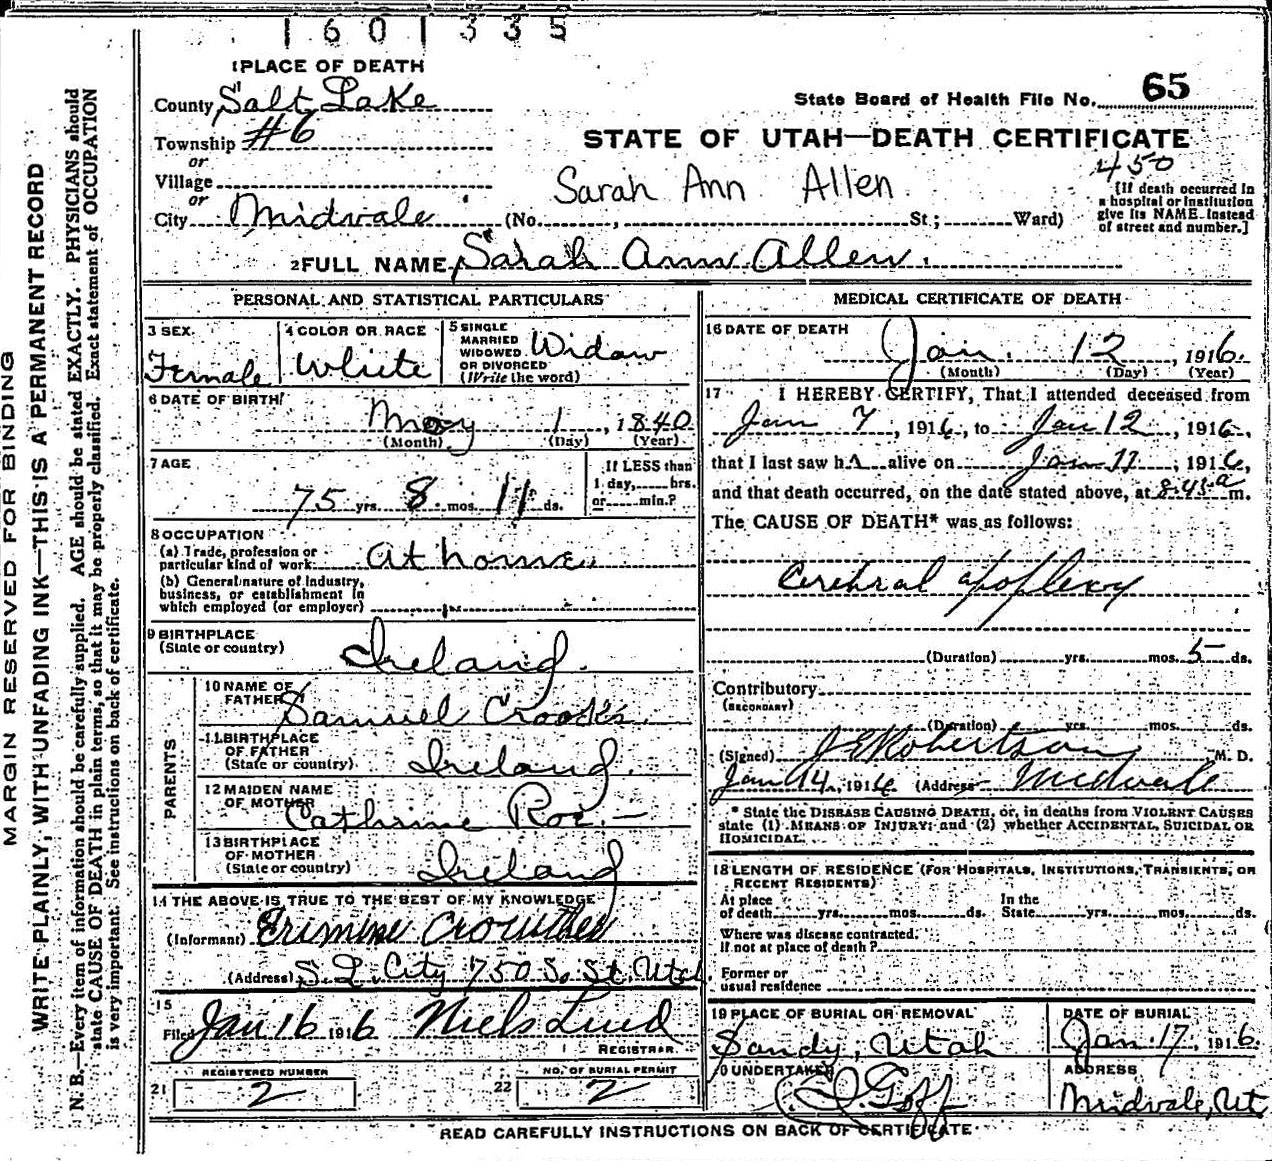 1601335
1 PLACE OF DEATH
County Salt Lake
State Board of Health File No. 65
Township #6
STATE OF UTAH—DEATH CERTIFICATE
or
450
Village
Sarah Ann Allen
[If death occurred in a hospital or institution give its NAME instead of street and number.]
or
City Midvale (No. , St.; Ward)
2 FULL NAME Sarah Ann Allen.
PERSONAL AND STATISTICAL PARTICULARS
3 SEX
Female
4 COLOR OR RACE
White
5 SINGLE
MARRIED
WIDOWED
OR DIVORCED
(Write the word)
Widow
6 DATE OF BIRTH
May 1, 1840
(Month) (Day) (Year)
7 AGE
75 yrs. 8 mos. 11 ds.
If LESS than
1 day, hrs.
or min.?
8 OCCUPATION
(a) Trade, profession or
particular kind of work At home
(b) General nature of industry,
business, or establishment in
which employed (or employer)
9 BIRTHPLACE
(State or country) Ireland.
PARENTS
10 NAME OF
FATHER Samuel Crooks.
11 BIRTHPLACE
OF FATHER
(State or country) Ireland.
12 MAIDEN NAME
OF MOTHER
Cathrine Roe.—
13 BIRTHPLACE
OF MOTHER
(State or country) Ireland
14 THE ABOVE IS TRUE TO THE BEST OF MY KNOWLEDGE
(Informant) Crowther
(Address) S. L. City 750 So. St. Utah.
15
Filed Jan 16 1916 Niels Lind
REGISTRAR.
21 REGISTERED NUMBER
2
22 NO. OF BURIAL PERMIT
2
MEDICAL CERTIFICATE OF DEATH
16 DATE OF DEATH
Jan. 12, 1916.
(Month) (Day) (Year)
17 I HEREBY CERTIFY, That I attended deceased from
Jan 7, 1916, to Jan 12, 1916,
that I last saw h alive on Jan 11, 1916,
and that death occurred, on the date stated above, at 8:45 a m.
The CAUSE OF DEATH* was as follows:
Cerebral apoplexy
(Duration) yrs. mos. 5 ds.
Contributory
(SECONDARY)
(Duration) yrs. mos. ds.
(Signed) J E Robertson M. D.
Jan 14, 1916 (Address) Midvale
* State the DISEASE CAUSING DEATH, or, in deaths from VIOLENT CAUSES
state (1) MEANS OF INJURY; and (2) whether ACCIDENTAL, SUICIDAL OR
HOMICIDAL.
18 LENGTH OF RESIDENCE (FOR HOSPITALS, INSTITUTIONS, TRANSIENTS, OR
RECENT RESIDENTS)
At place In the
of death yrs. mos. ds. State yrs. mos. ds.
Where was disease contracted.
If not at place of death?
Former or
usual residence
19 PLACE OF BURIAL OR REMOVAL
Sandy, Utah
DATE OF BURIAL
Jan. 17, 1916.
20 UNDERTAKER
Goff
ADDRESS
Midvale, Ut.
READ CAREFULLY INSTRUCTIONS ON BACK OF CERTIFICATE
MARGIN RESERVED FOR BINDING
WRITE PLAINLY, WITH UNFADING INK—THIS IS A PERMANENT RECORD
N. B.—Every item of information should be carefully supplied. AGE should be stated EXACTLY. PHYSICIANS should
state CAUSE OF DEATH in plain terms, so that it may be properly classified. Exact statement of OCCUPATION
is very important. See instructions on back of certificate.